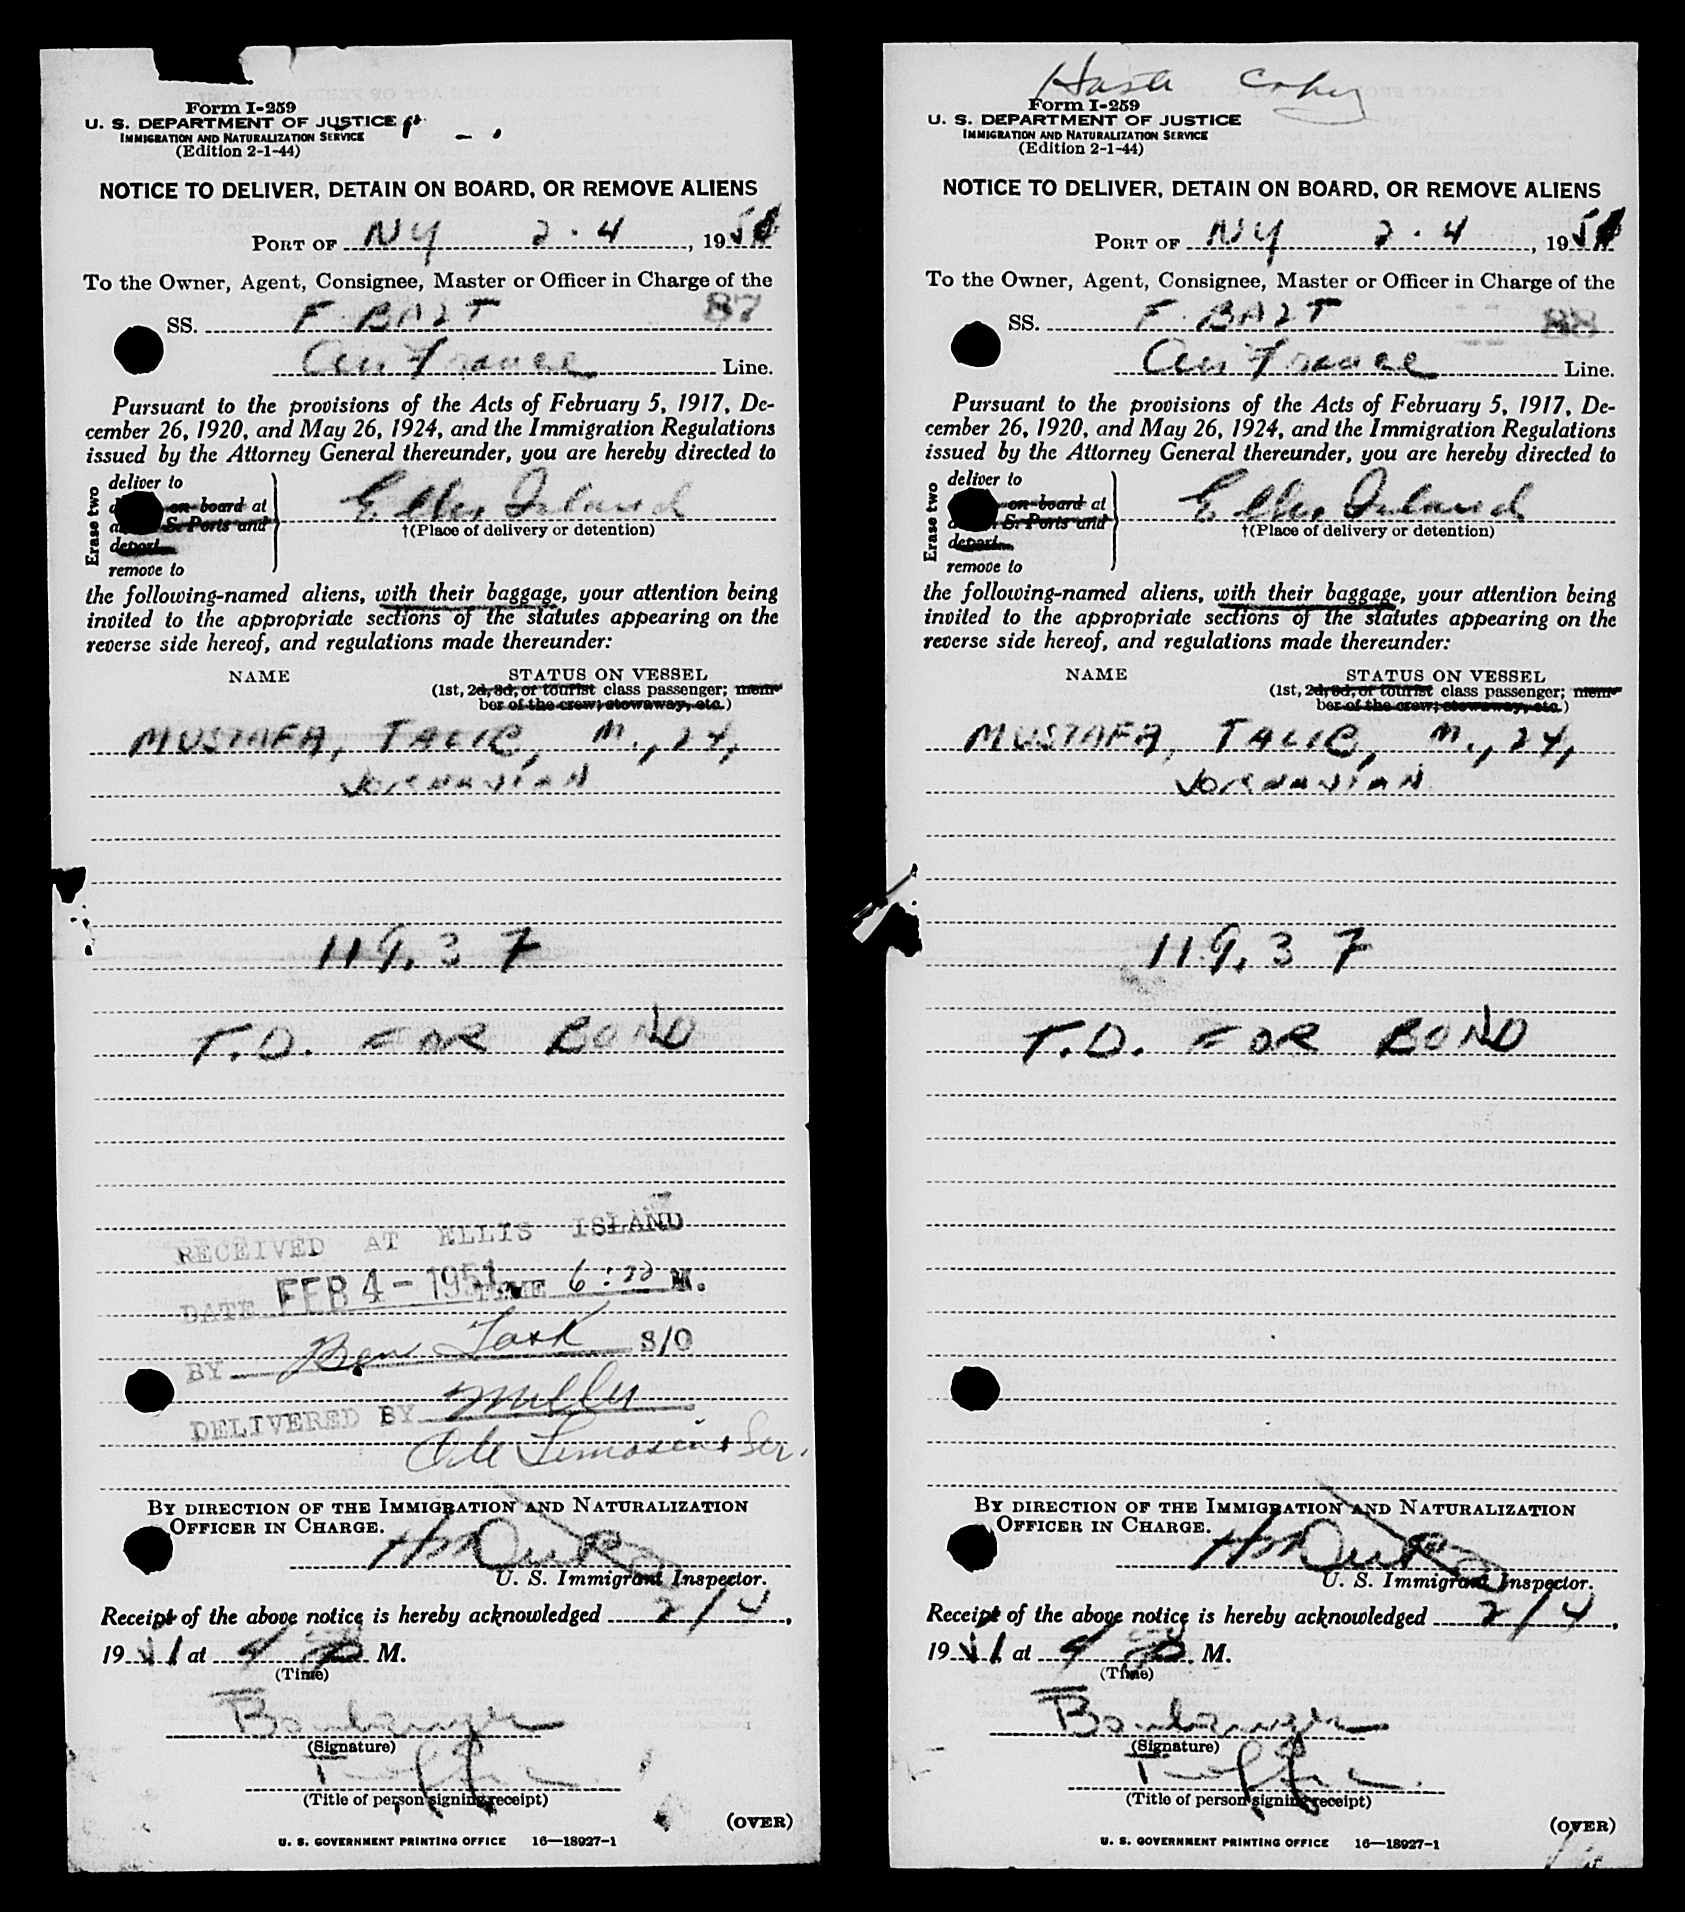 Form I-259
U. S. DEPARTMENT OF JUSTICE
IMMIGRATION AND NATURALIZATION SERVICE
(Edition 2-1-44)
NOTICE TO DELIVER, DETAIN ON BOARD, OR REMOVE ALIENS
PORT OF NY 2.4, 1951
To the Owner, Agent, Consignee, Master or Officer in Charge of the
SS. F. BAZT 87
Air France Line.
Pursuant to the provisions of the Acts of February 5, 1917, De-
cember 26, 1920, and May 26, 1924, and the Immigration Regulations
issued by the Attorney General thereunder, you are hereby directed to
Erase two
deliver to
on board at
S. Ports and
deport
remove to
Ellis Island
†(Place of delivery or detention)
the following-named aliens, with their baggage, your attention being
invited to the appropriate sections of the statutes appearing on the
reverse side hereof, and regulations made thereunder:
NAME STATUS ON VESSEL
(1st, 2d, 3d, or tourist class passenger; mem-
ber of the crew; stowaway, etc.)
MUSTAFA, TALIB, M., 24,
JORDANIAN
119.37
T.D. FOR BOND
RECEIVED AT ELLIS ISLAND
DATE FEB 4 - 1951 TIME 6: M.
BY Ben S/O
DELIVERED BY Miller
BY DIRECTION OF THE IMMIGRATION AND NATURALIZATION
OFFICER IN CHARGE.
U. S. Immigrant Inspector.
Receipt of the above notice is hereby acknowledged 2/4,
1951 at 4 M.
(Time)
Boulanger
(Signature)
Traffic
(Title of person signing receipt)
(OVER)
U. S. GOVERNMENT PRINTING OFFICE 16—18927-1
Copy
Form I-259
U. S. DEPARTMENT OF JUSTICE
IMMIGRATION AND NATURALIZATION SERVICE
(Edition 2-1-44)
NOTICE TO DELIVER, DETAIN ON BOARD, OR REMOVE ALIENS
PORT OF NY 2.4, 1951
To the Owner, Agent, Consignee, Master or Officer in Charge of the
SS. F. BAZT 88
Air France Line.
Pursuant to the provisions of the Acts of February 5, 1917, De-
cember 26, 1920, and May 26, 1924, and the Immigration Regulations
issued by the Attorney General thereunder, you are hereby directed to
Erase two
deliver to
on board at
S. Ports and
deport
remove to
Ellis Island
†(Place of delivery or detention)
the following-named aliens, with their baggage, your attention being
invited to the appropriate sections of the statutes appearing on the
reverse side hereof, and regulations made thereunder:
NAME STATUS ON VESSEL
(1st, 2d, 3d, or tourist class passenger; mem-
ber of the crew; stowaway, etc.)
MUSTAFA, TALIB, M., 24,
JORDANIAN
119.37
T.D. FOR BOND
BY DIRECTION OF THE IMMIGRATION AND NATURALIZATION
OFFICER IN CHARGE.
U. S. Immigrant Inspector.
Receipt of the above notice is hereby acknowledged 2/4,
1951 at 4 M.
(Time)
Boulanger
(Signature)
Traffic
(Title of person signing receipt)
(OVER)
U. S. GOVERNMENT PRINTING OFFICE 16—18927-1